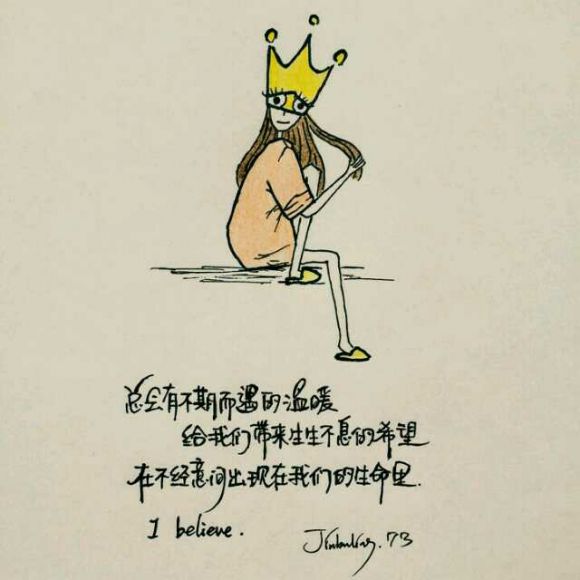 总会有不期而遇的温暖
给我们带来生生不息的希望
在不经意间出现在我们的生命里.
I believe.